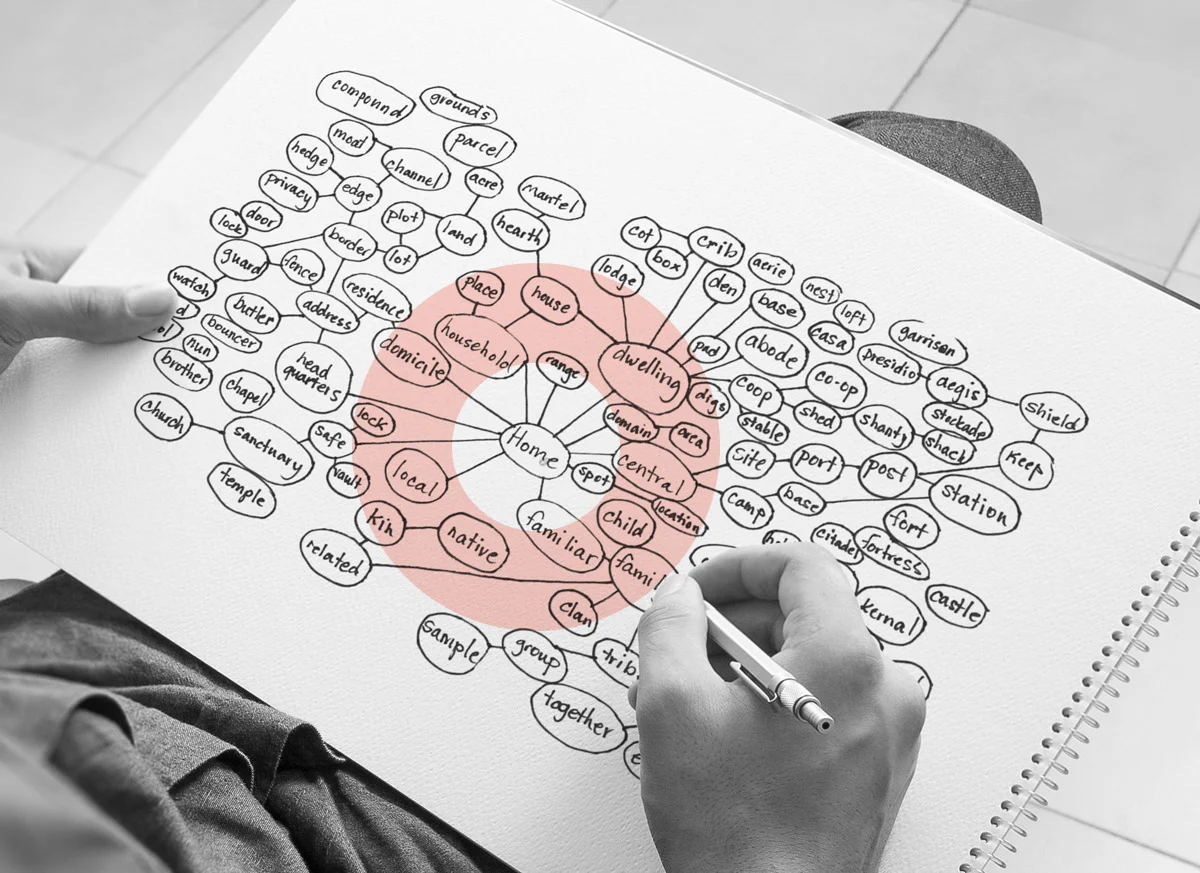 compound
grounds
moad
parcel
hedge
channel
acre
privacy
edge
Mantel
lock
door
plot
land
hearth
border
lot
guard
fence
cot
crib
box
lodge
den
aerie
nest
loft
watch
residence
place
house
base
casa
garrison
butler
address
bouncer
household
dwelling
pad
abode
presidio
nun
domicile
range
aegis
brother
head
quarters
digs
coop
co-op
shield
chapel
lock
domain
area
stable
shed
shanty
stockade
shack
church
sanctuary
safe
Home
central
site
port
post
keep
temple
vault
local
spot
location
camp
base
station
kin
native
familiar
child
citadel
fort
fortress
related
clan
kernal
castle
sample
group
together